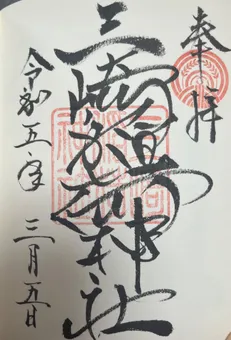 奉拝
三崎稲荷神社
令和五年 三月五日